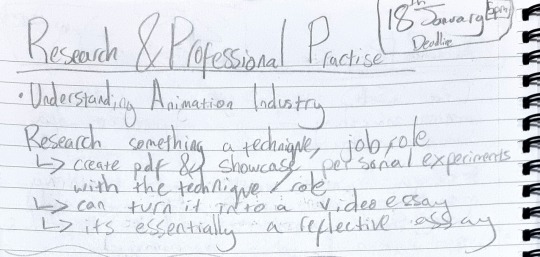 18th January 5pm
Deadline
Research & Professional Practise
• Understanding Animation Industry
Research something a technique, job role
↳ create pdf & showcase personal experiments
with the technique / role
↳ can turn it into a video essay
↳ its essentially a reflective essay